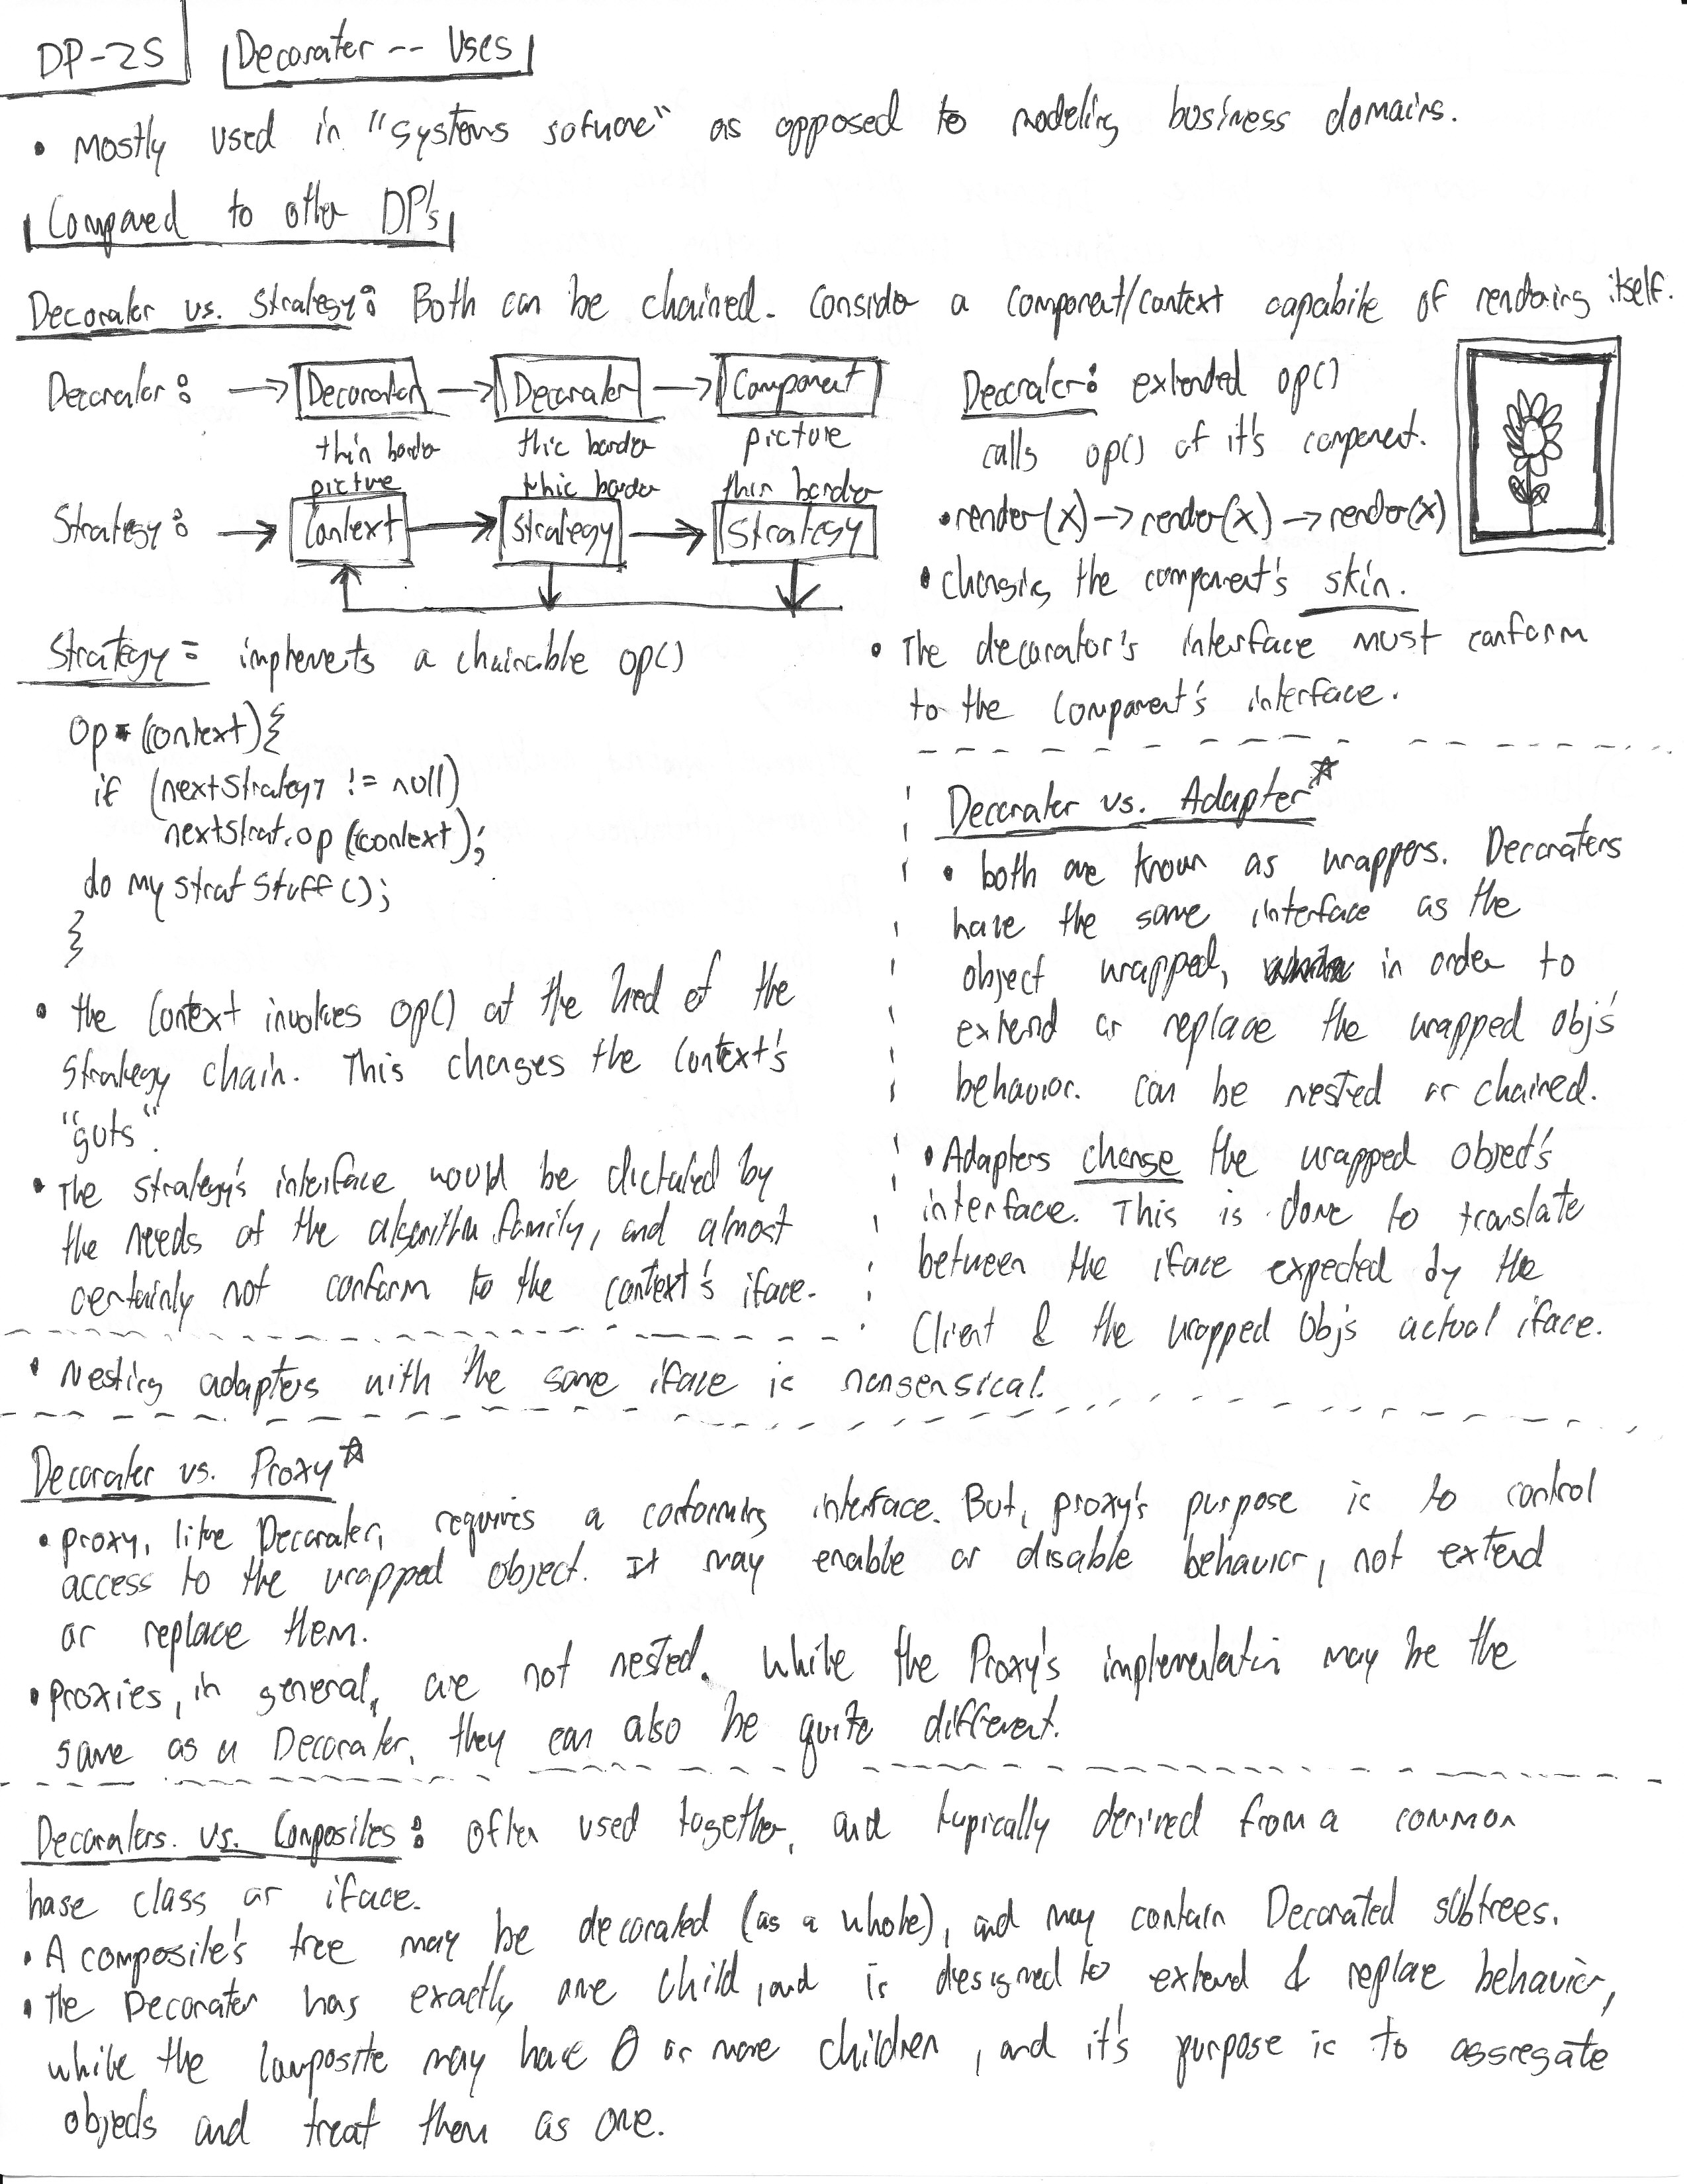 DP-25
Decorater -- Uses
• Mostly used in "systems sofware" as opposed to modeling business domains.
Compared to other DP's
Decorater vs. Strategy: Both can be chained. Consider a component/context capabile of rendering itself.
Decorater: → Decorater → Decorater → Component
thin border thic border picture
picture thic border thin border
Strategy: → Context → Strategy → Strategy
Strategy: implements a chainable op()
Op (context){
if (nextStrategy != null)
nextStrat.op (context);
do my strat stuff ();
}
• the Context invokes op() at the head of the
Strategy chain. This changes the Context's
"guts".
• The strategy's interface would be dictated by
the needs of the algorithm family, and almost
certainly not conform to the context's iface.
Decorater: extended op()
calls op() of it's component.
• render(x) → render(x) → render(x)
• changing the component's skin.
• The decorator's interface must conform
to the Component's interface.
Decorater vs. Adapter☆
• both are known as wrappers. Decoraters
have the same interface as the
object wrapped, in order to
extend or replace the wrapped obj's
behavior. Can be nested or chained.
• Adapters change the wrapped object's
interface. This is done to translate
between the iface expected by the
Client & the wrapped obj's actual iface.
• Nesting adapters with the same iface is nonsensical.
Decorater vs. Proxy☆
• proxy, like Decorater, requires a conforming interface. But, proxy's purpose is to control
access to the wrapped object. It may enable or disable behavior, not extend
or replace them.
• proxies, in general, are not nested. While the Proxy's implementation may be the
same as a Decorater, they can also be quite different.
Decoraters vs. Composites: often used together, and typically derived from a common
base class or iface.
• A composite's tree may be decorated (as a whole), and may contain Decorated subtrees.
• The Decorater has exactly one child, and is designed to extend & replace behavior,
while the Composite may have 0 or more children, and it's purpose is to aggregate
objects and treat them as one.